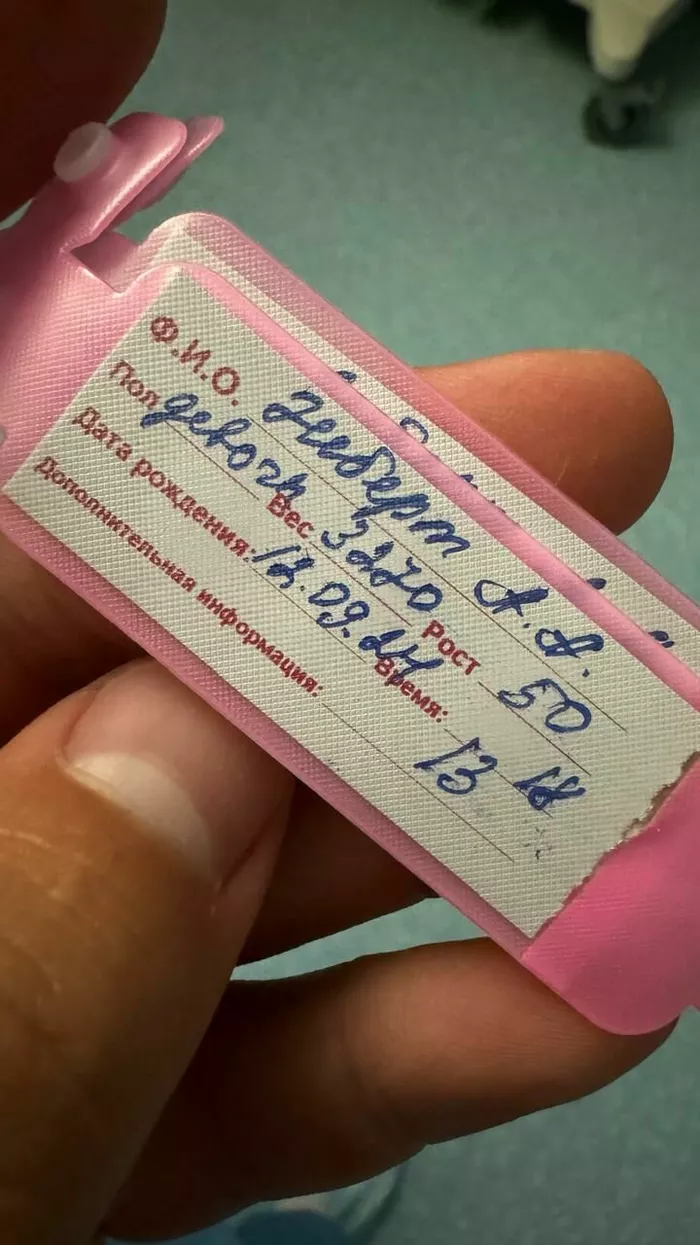 Ф.И.О. Ниберт А.А.
Пол девочк Вес 3270 Рост 50
Дата рождения: 12.09.24 Время: 13 18
Дополнительная информация: